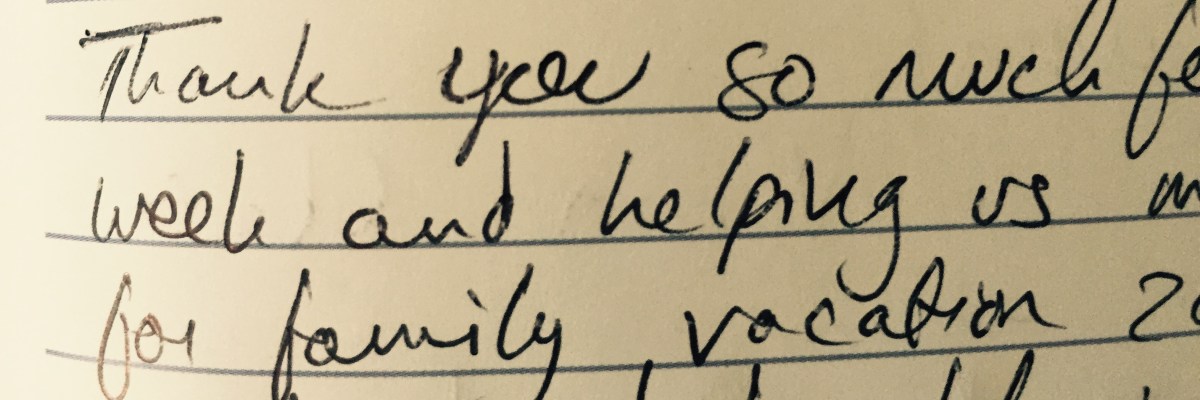 Thank you so much
week and helping us
for family vacation